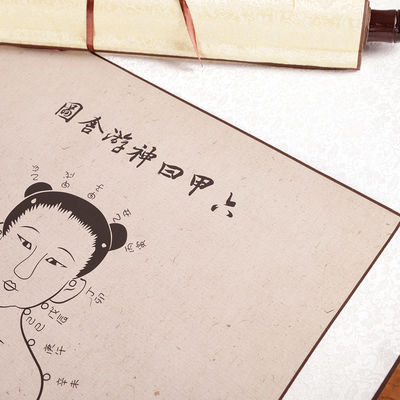 六甲日神游舍圖
甲子
乙丑
丙寅
丁卯
戊辰
己巳
庚午
辛未